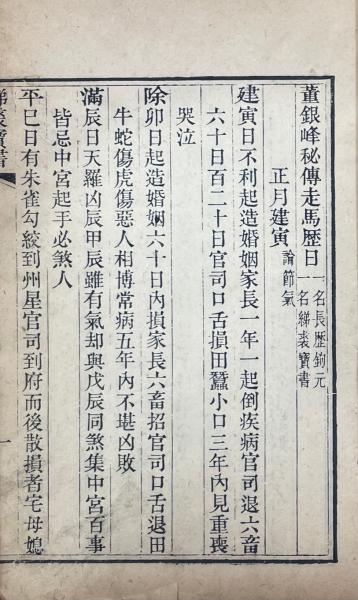 董銀峰秘傳走馬歷日
一名長歷鉤元
一名綈袠寶書
正月建寅
論節氣
建寅日不利起造婚姻家長一年一起倒疾病官司退六畜
六十日百二十日官司口舌損田蠶小口三年內見重喪
哭泣
除卯日起造婚姻六十日內損家長六畜招官司口舌退田
牛蛇傷虎傷惡人相博常病五年內不堪凶敗
滿辰日天羅凶辰甲辰雖有氣却與戊辰同煞集中宮百事
皆忌中宮起手必煞人
平巳日有朱雀勾絞到州星官司到府而後散損者宅母媳
綈袠寶書
一